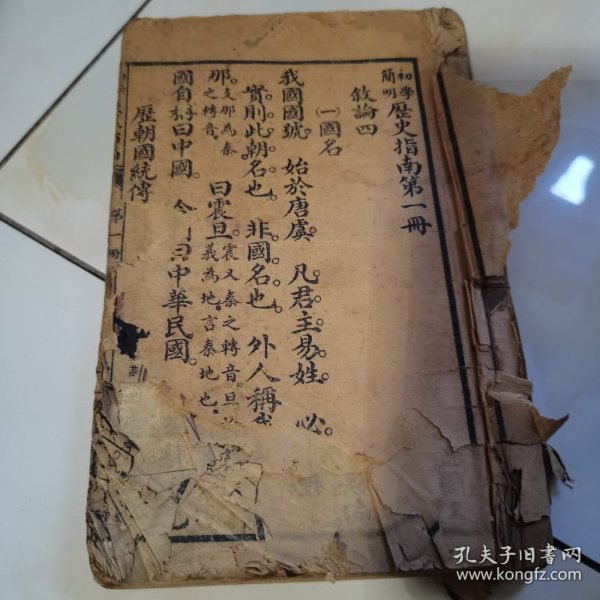 初學
簡明
歷史指南第一冊
敘論四
㈠國名
我國國號。始於唐虞。凡君主易姓。必
實則此朝名也。非國名也。外人稱我
那。支那為秦
之轉音。
曰震旦。震又秦之轉音旦
義為地言秦地也。
國自稱曰中國。今 曰中華民國。
歷朝國統傳
第一冊
孔夫子旧书网
www.kongfz.com